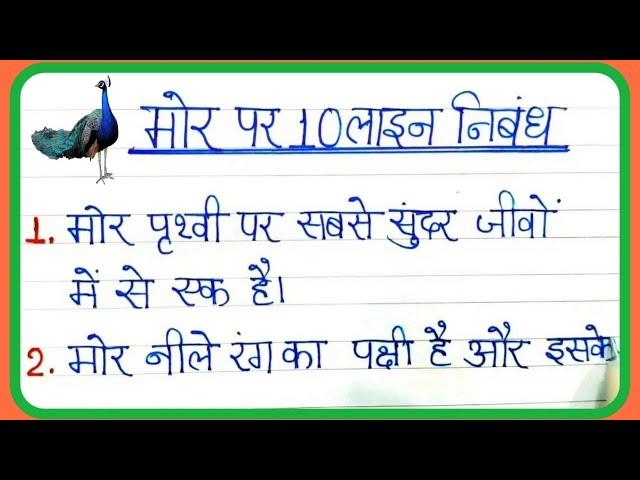 मोर पर 10 लाइन निबंध
1. मोर पृथ्वी पर सबसे सुंदर जीवों
में से एक है।
2. मोर नीले रंग का पक्षी है और इसके